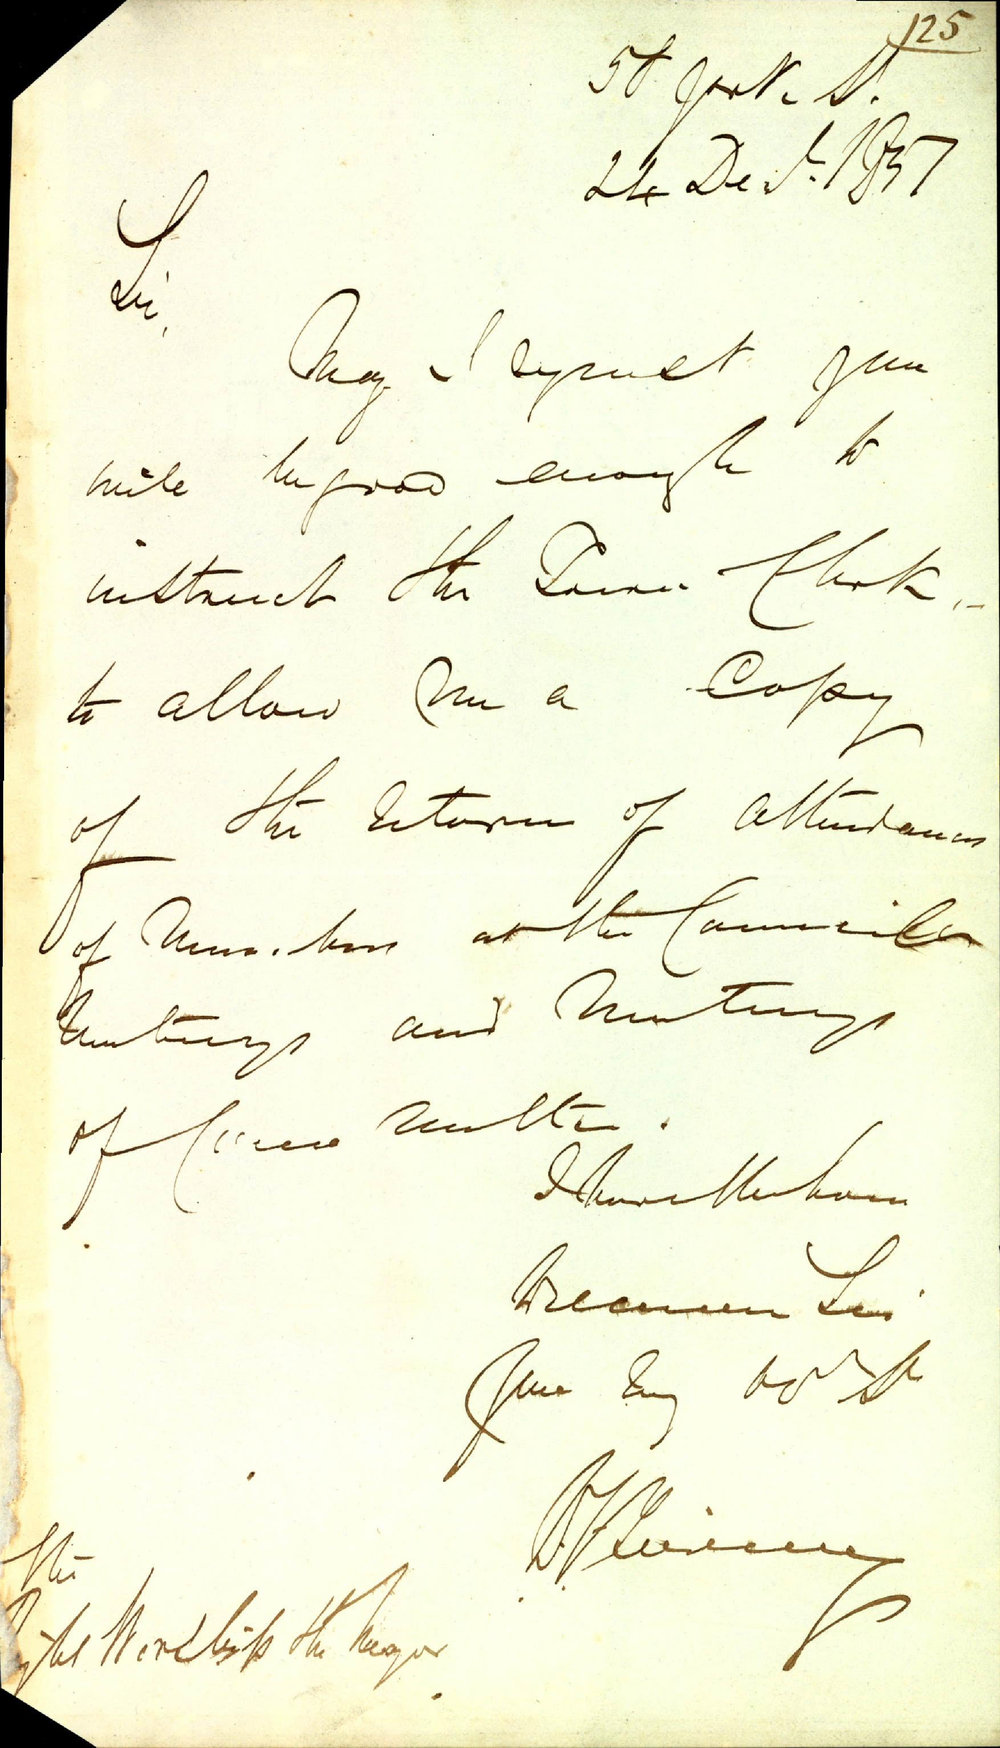 125
York St.
24 Decr. 1857
Sir,
May I request you
will be good enough to
instruct the Town Clerk,
to allow me a Copy
of the return of attendances
of Members at the Council
Meetings and Meetings
of Committee.
I have the honor
to remain Sir
Your
The
Right Worship the Mayor